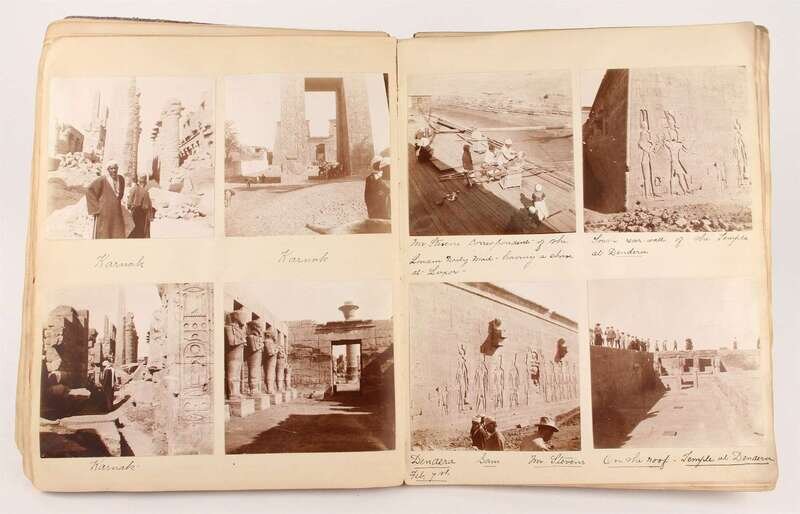 Karnak
Karnak
Mr Stevens Correspondent of the
London Daily Mail - having a shave
at Luxor -
rear wall of the Temple
at Dendera
Karnak
Dendera Sam Mr Stevens
Feb 7th
On the roof - Temple at Dendera